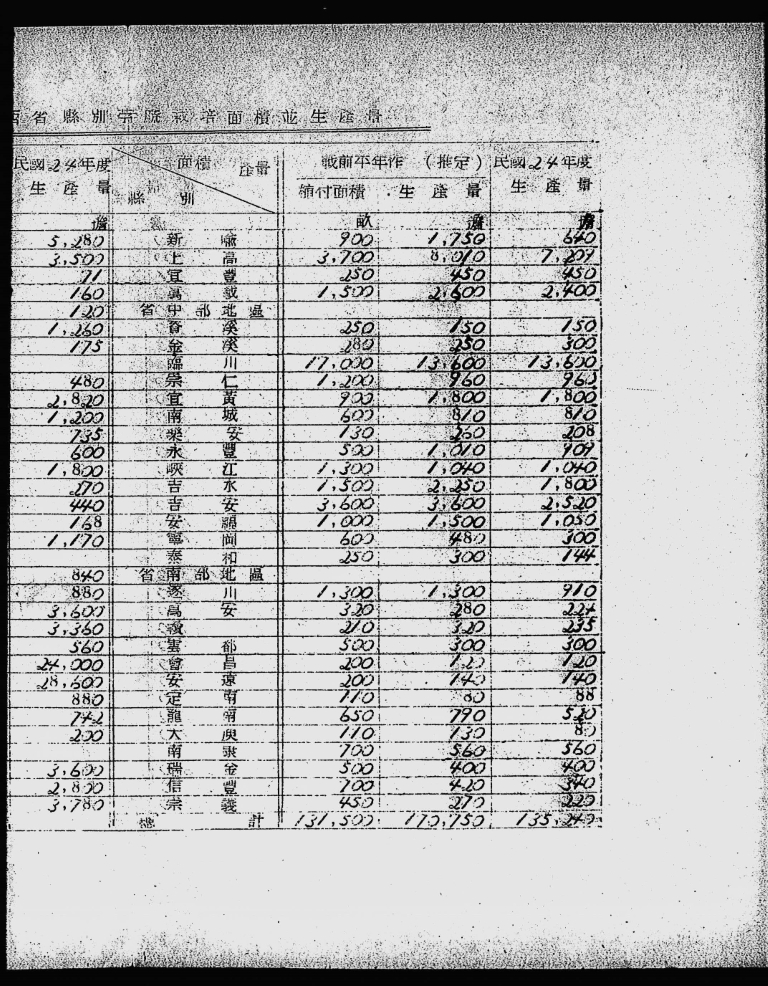 西省縣別苧麻栽培面積並生產量
民國24年度 面積 產量 戰前平年作 (推定) 民國24年度
生產量 縣別 植付面積 生產量 生產量
擔 畝 擔 擔
5,280 新喻 900 1,750 640
3,500 上高 3,700 8,010 7,209
71 宜豐 250 450 450
160 萬載 1,500 2,600 2,400
120 省中部地區
1,260 資溪 250 150 150
175 金溪 280 250 300
臨川 17,000 13,600 13,600
480 崇仁 1,200 960 960
2,820 宜黃 900 1,800 1,800
1,200 南城 600 810 810
735 樂安 130 260 208
600 永豐 500 1,010 909
1,800 峽江 1,300 1,040 1,040
270 吉水 1,500 2,250 1,800
440 吉安 3,600 3,600 2,520
168 安福 1,000 1,500 1,050
1,170 寧岡 600 480 300
泰和 250 300 144
840 省南部地區
880 遂川 1,300 1,300 910
3,600 萬安 320 280 224
3,360 210 320 235
560 雩都 500 300 300
24,000 會昌 200 120 120
28,600 安遠 200 140 140
880 定南 110 80 88
742 龍南 650 790 520
200 大庾 110 130 80
南康 700 560 560
3,600 瑞金 500 400 400
2,800 信豐 700 420 340
3,780 崇義 450 270 220
總計 131,500 170,750 135,240